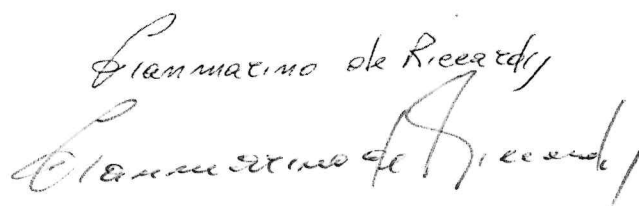 Gianmarino de Riccardis
Gianmarino de Riccardis